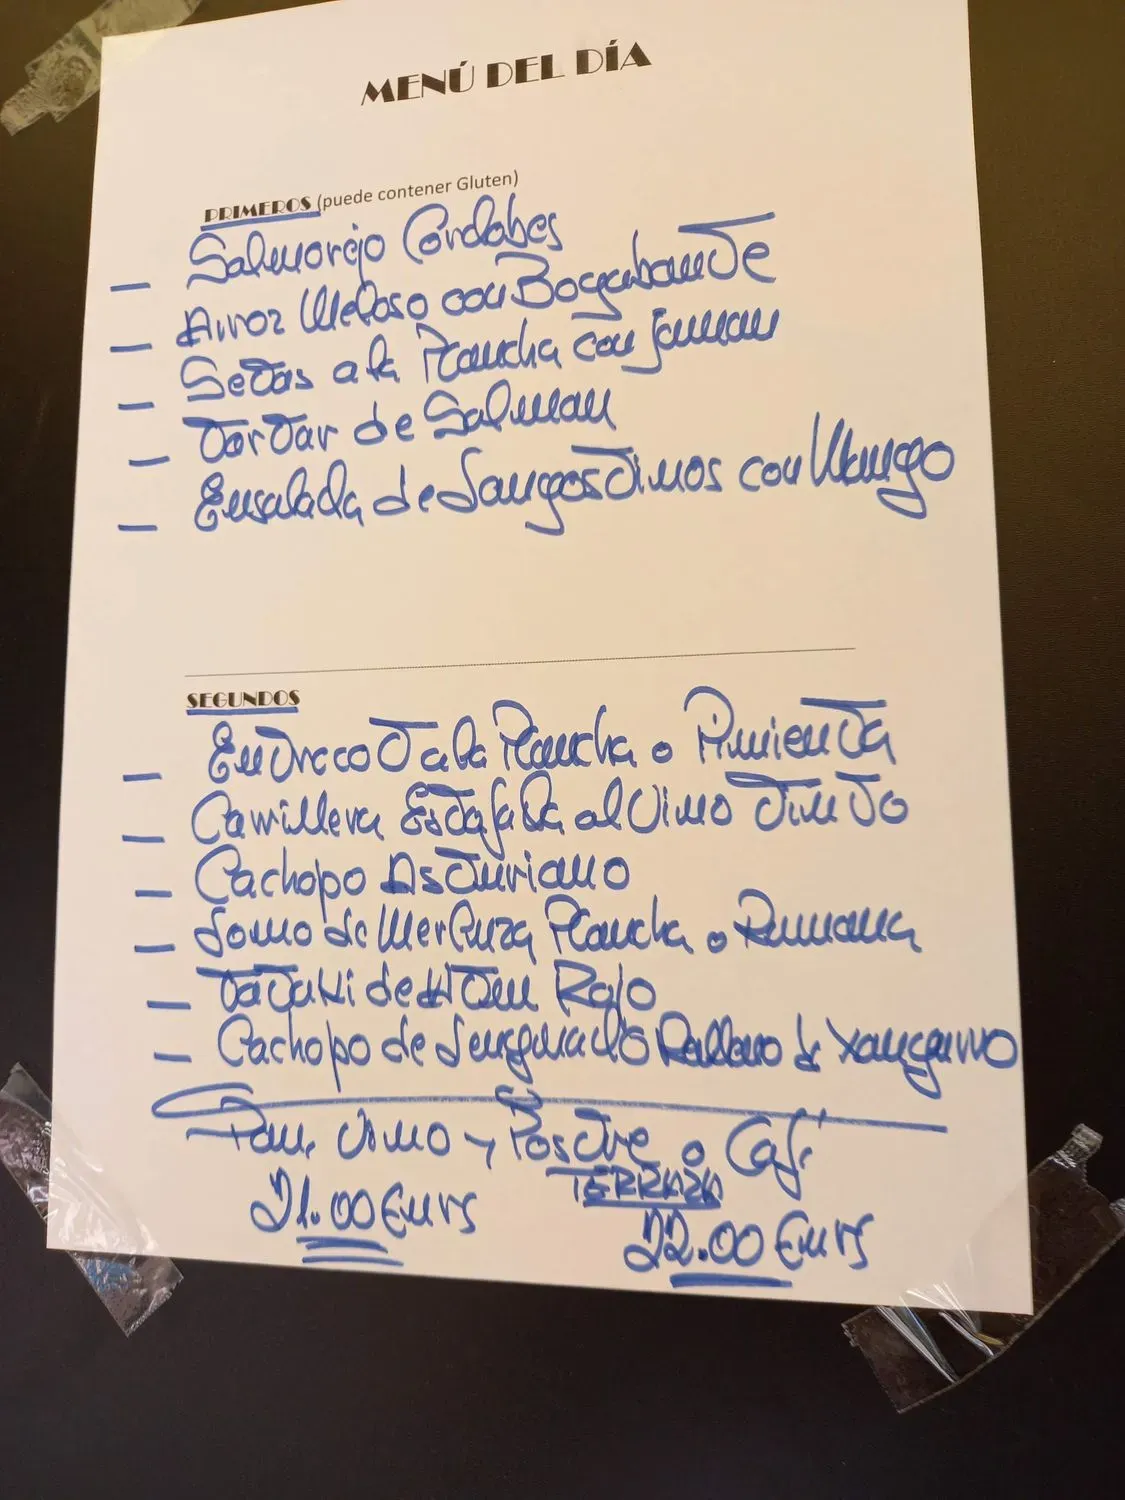 MENÚ DEL DÍA
PRIMEROS (puede contener Gluten)
— Salmorejo Cordobes
— Arroz Meloso con Bogabante
— Setas a la Plancha con Jamon
— Tartar de Salmon
— Ensalada de Langostinos con Mango
SEGUNDOS
— Entrecot a la Plancha o Pimienta
— Carrillera Estofada al Vino Tinto
— Cachopo Asturiano
— Lomo de Merluza Plancha o Romana
— Tataki de Atun Rojo
— Cachopo de Lenguado Relleno de Xangurro
Pan, Vino y Postre o Café
TERRAZA
21.00 Eurs
22.00 Eurs